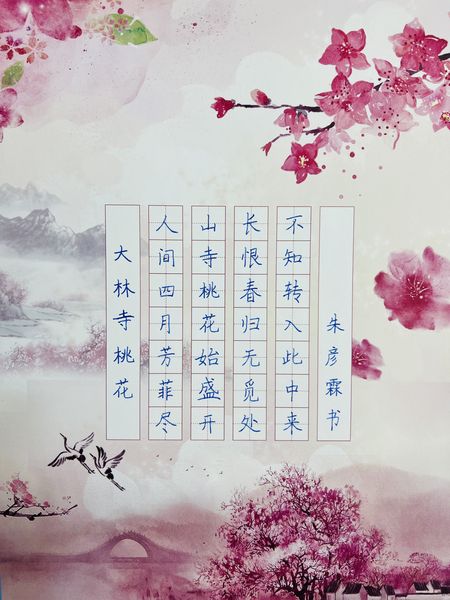 大林寺桃花
人间四月芳菲尽
山寺桃花始盛开
长恨春归无觅处
不知转入此中来
朱彦霖书